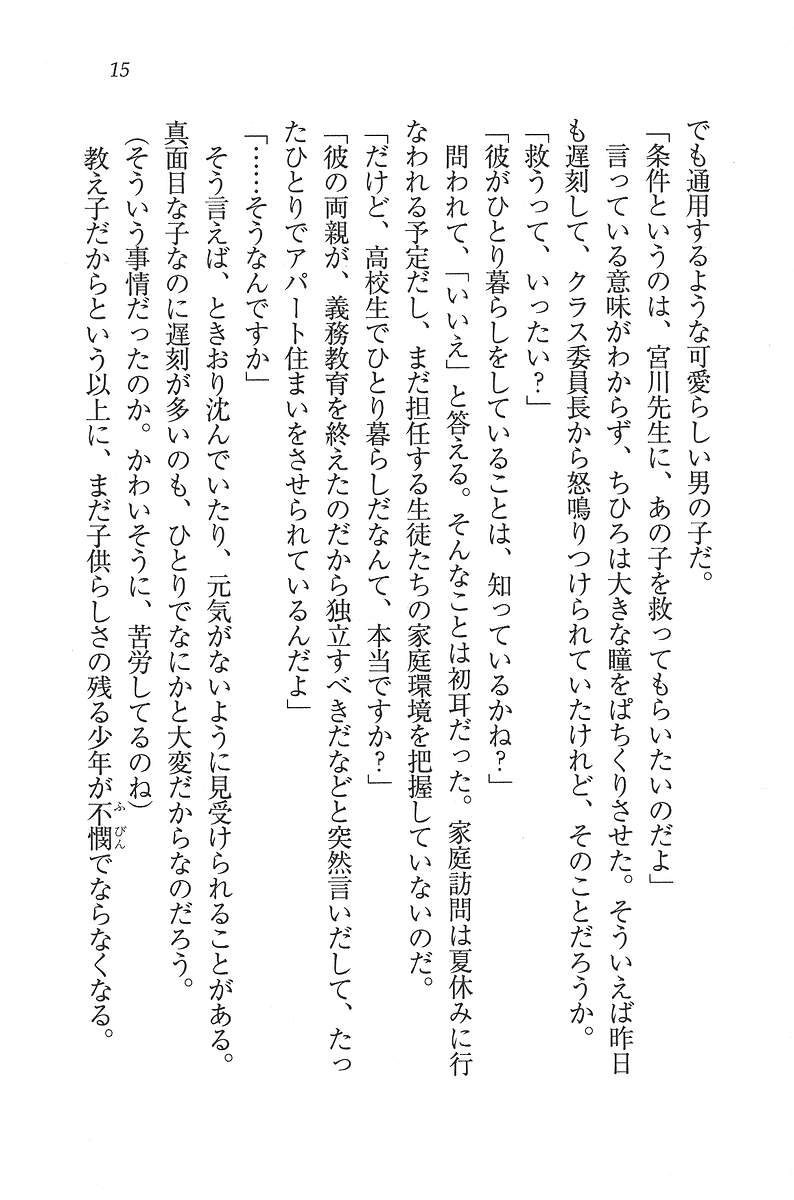 15
でも通用するような可愛らしい男の子だ。
「条件というのは、宮川先生に、あの子を救ってもらいたいのだよ」
言っている意味がわからず、ちひろは大きな瞳をぱちくりさせた。そういえば昨日
も遅刻して、クラス委員長から怒鳴りつけられていたけれど、そのことだろうか。
「救うって、いったい？」
「彼がひとり暮らしをしていることは、知っているかね？」
問われて、「いいえ」と答える。そんなことは初耳だった。家庭訪問は夏休みに行
なわれる予定だし、まだ担任する生徒たちの家庭環境を把握していないのだ。
「だけど、高校生でひとり暮らしだなんて、本当ですか？」
「彼の両親が、義務教育を終えたのだから独立すべきだなどと突然言いだして、たっ
たひとりでアパート住まいをさせられているんだよ」
「……そうなんですか」
そう言えば、ときおり沈んでいたり、元気がないように見受けられることがある。
真面目な子なのに遅刻が多いのも、ひとりでなにかと大変だからなのだろう。
（そういう事情だったのか。かわいそうに、苦労してるのね）
教え子だからという以上に、まだ子供らしさの残る少年が不憫でならなくなる。
ふびん